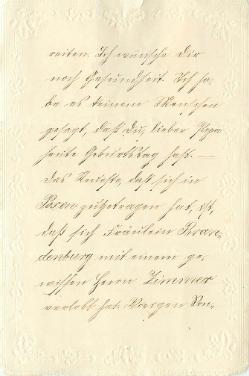 reiten. Ich wünsche Dir
noch Gesundheit. Ich ha-
be es keinem Menschen
gesagt, daß Du, lieber Papa
heute Geburtstag hast. —
Das Neueste, daß sich in
Posen zugetragen hat, ist,
daß sich Fräulein Bran-
denburg mit einem ge-
wissen Herrn Zimmer
verlobt hat. Morgen